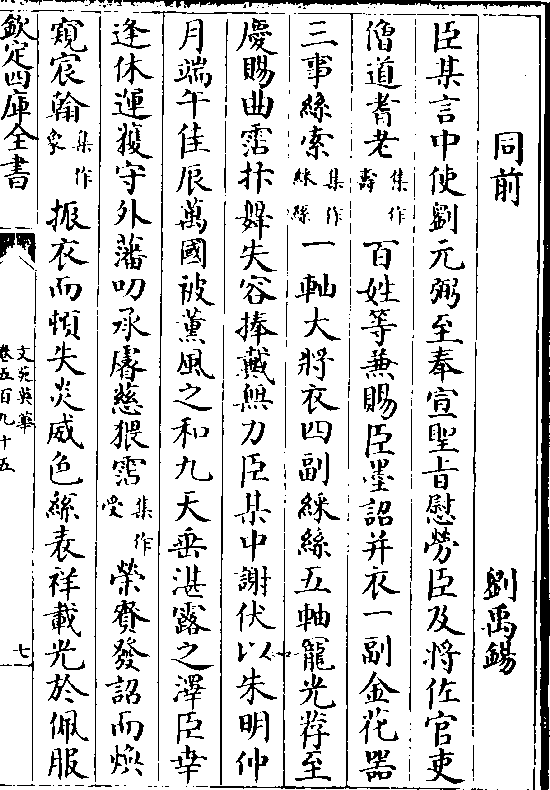 同前
劉禹錫
臣某言中使劉元弼至奉宣聖旨慰勞臣及將佐官吏
僧道耆老集作壽百姓等兼賜臣墨詔并衣一副金花器
三事綵索集作綵絲一軸大將衣四副綵絲五軸寵光荐至
慶賜曲霑抃舞失容捧戴無力臣某中謝伏以朱明仲
月端午佳辰萬國被薰風之和九天垂湛露之澤臣幸
逢休運獲守外藩叨承睿慈猥霑集作受榮賚發詔而煥
窺宸翰集作象振衣而頓失炎威色絲表祥載光於佩服
欽定四庫全書
文苑英華
卷五百九十五
七